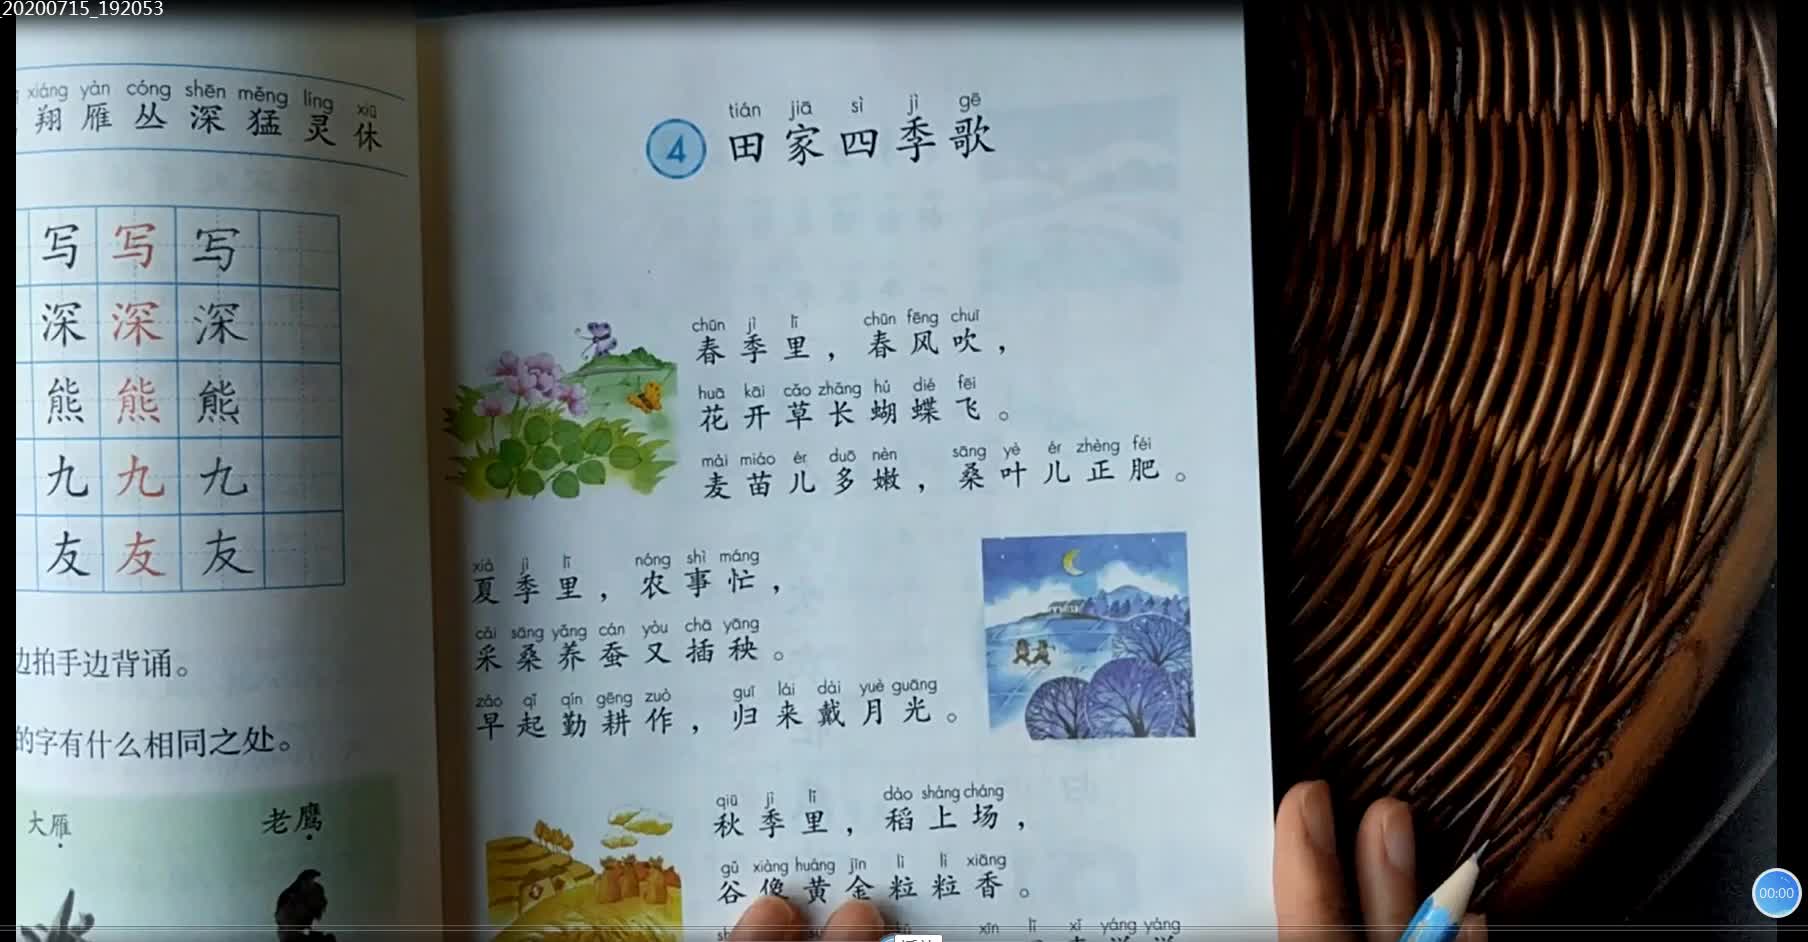 20200715_192053
xiáng yàn cóng shēn měng líng xiū
翔 雁 丛 深 猛 灵 休
写 写 写
深 深 深
熊 熊 熊
九 九 九
友 友 友
边拍手边背诵。
的字有什么相同之处。
大雁 老鹰
tián jiā sì jì gē
4 田家四季歌
chūn jì lǐ chūn fēng chuī
春季里，春风吹，
huā kāi cǎo zhǎng hú dié fēi
花开草长蝴蝶飞。
mài miáo ér duō nèn sāng yè ér zhèng féi
麦苗儿多嫩，桑叶儿正肥。
xià jì lǐ nóng shì máng
夏季里，农事忙，
cǎi sāng yǎng cán yòu chā yāng
采桑养蚕又插秧。
zǎo qǐ qín gēng zuò guī lái dài yuè guāng
早起勤耕作，归来戴月光。
qiū jì lǐ dào shàng cháng
秋季里，稻上场，
gǔ xiàng huáng jīn lì lì xiāng
谷像黄金粒粒香。
xīn lǐ xǐ yáng yáng
00:00